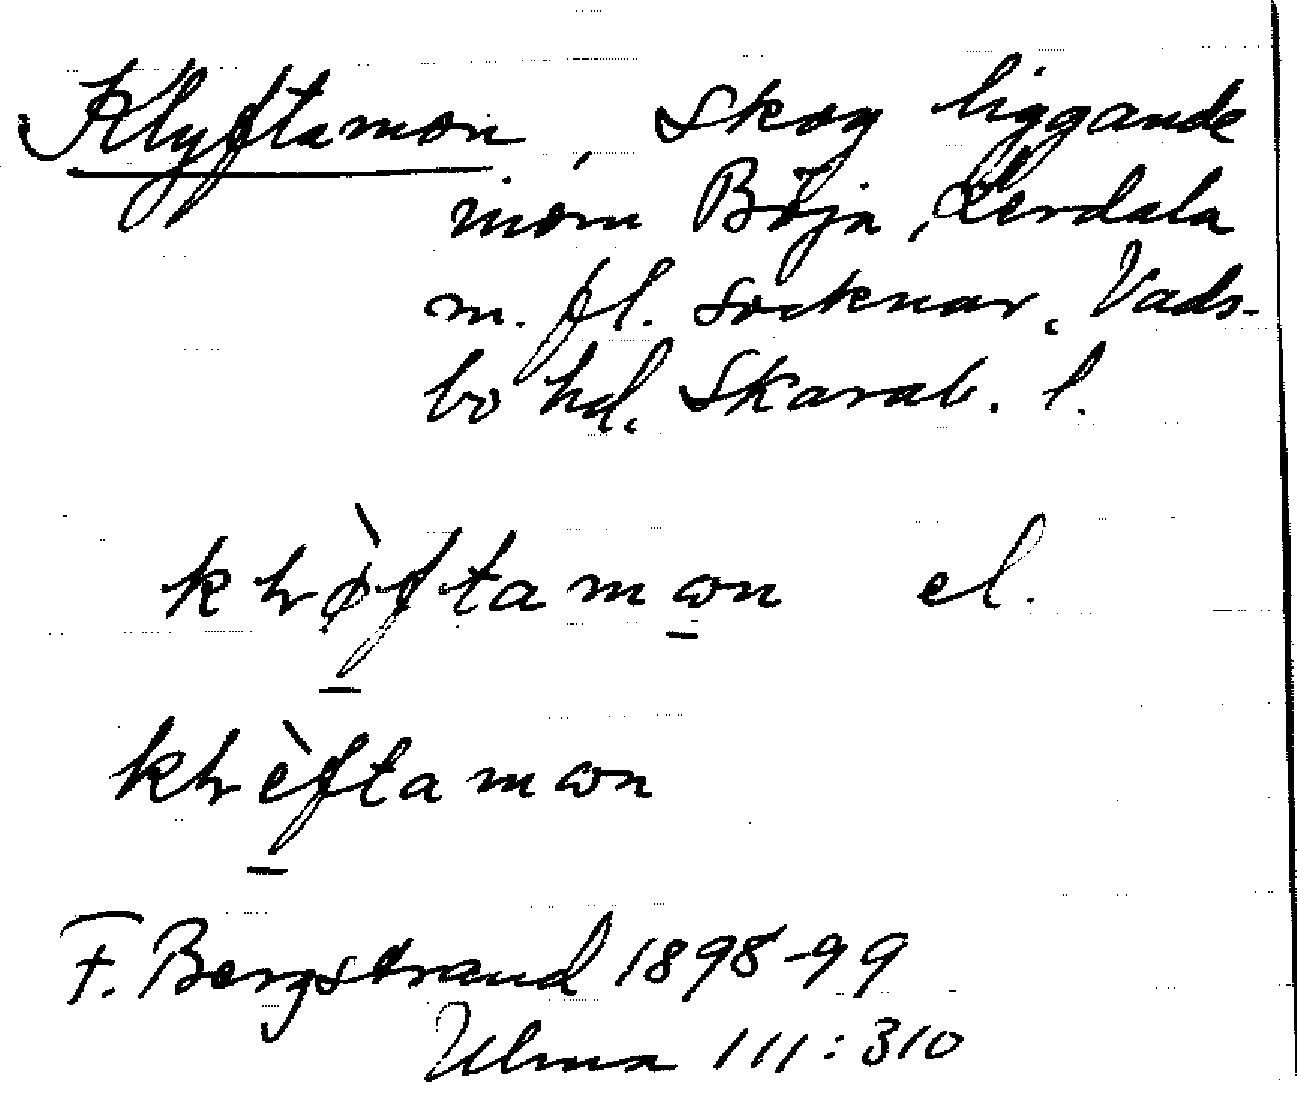 Klyftamon, Skog liggande
inom Böja, Lerdala
m. fl. socknar, Vads-
bo hd. Skarab. l.
khøftamɷn el.
khèftamɷn
F. Bergstrand 1898-99
Ulma 111:310